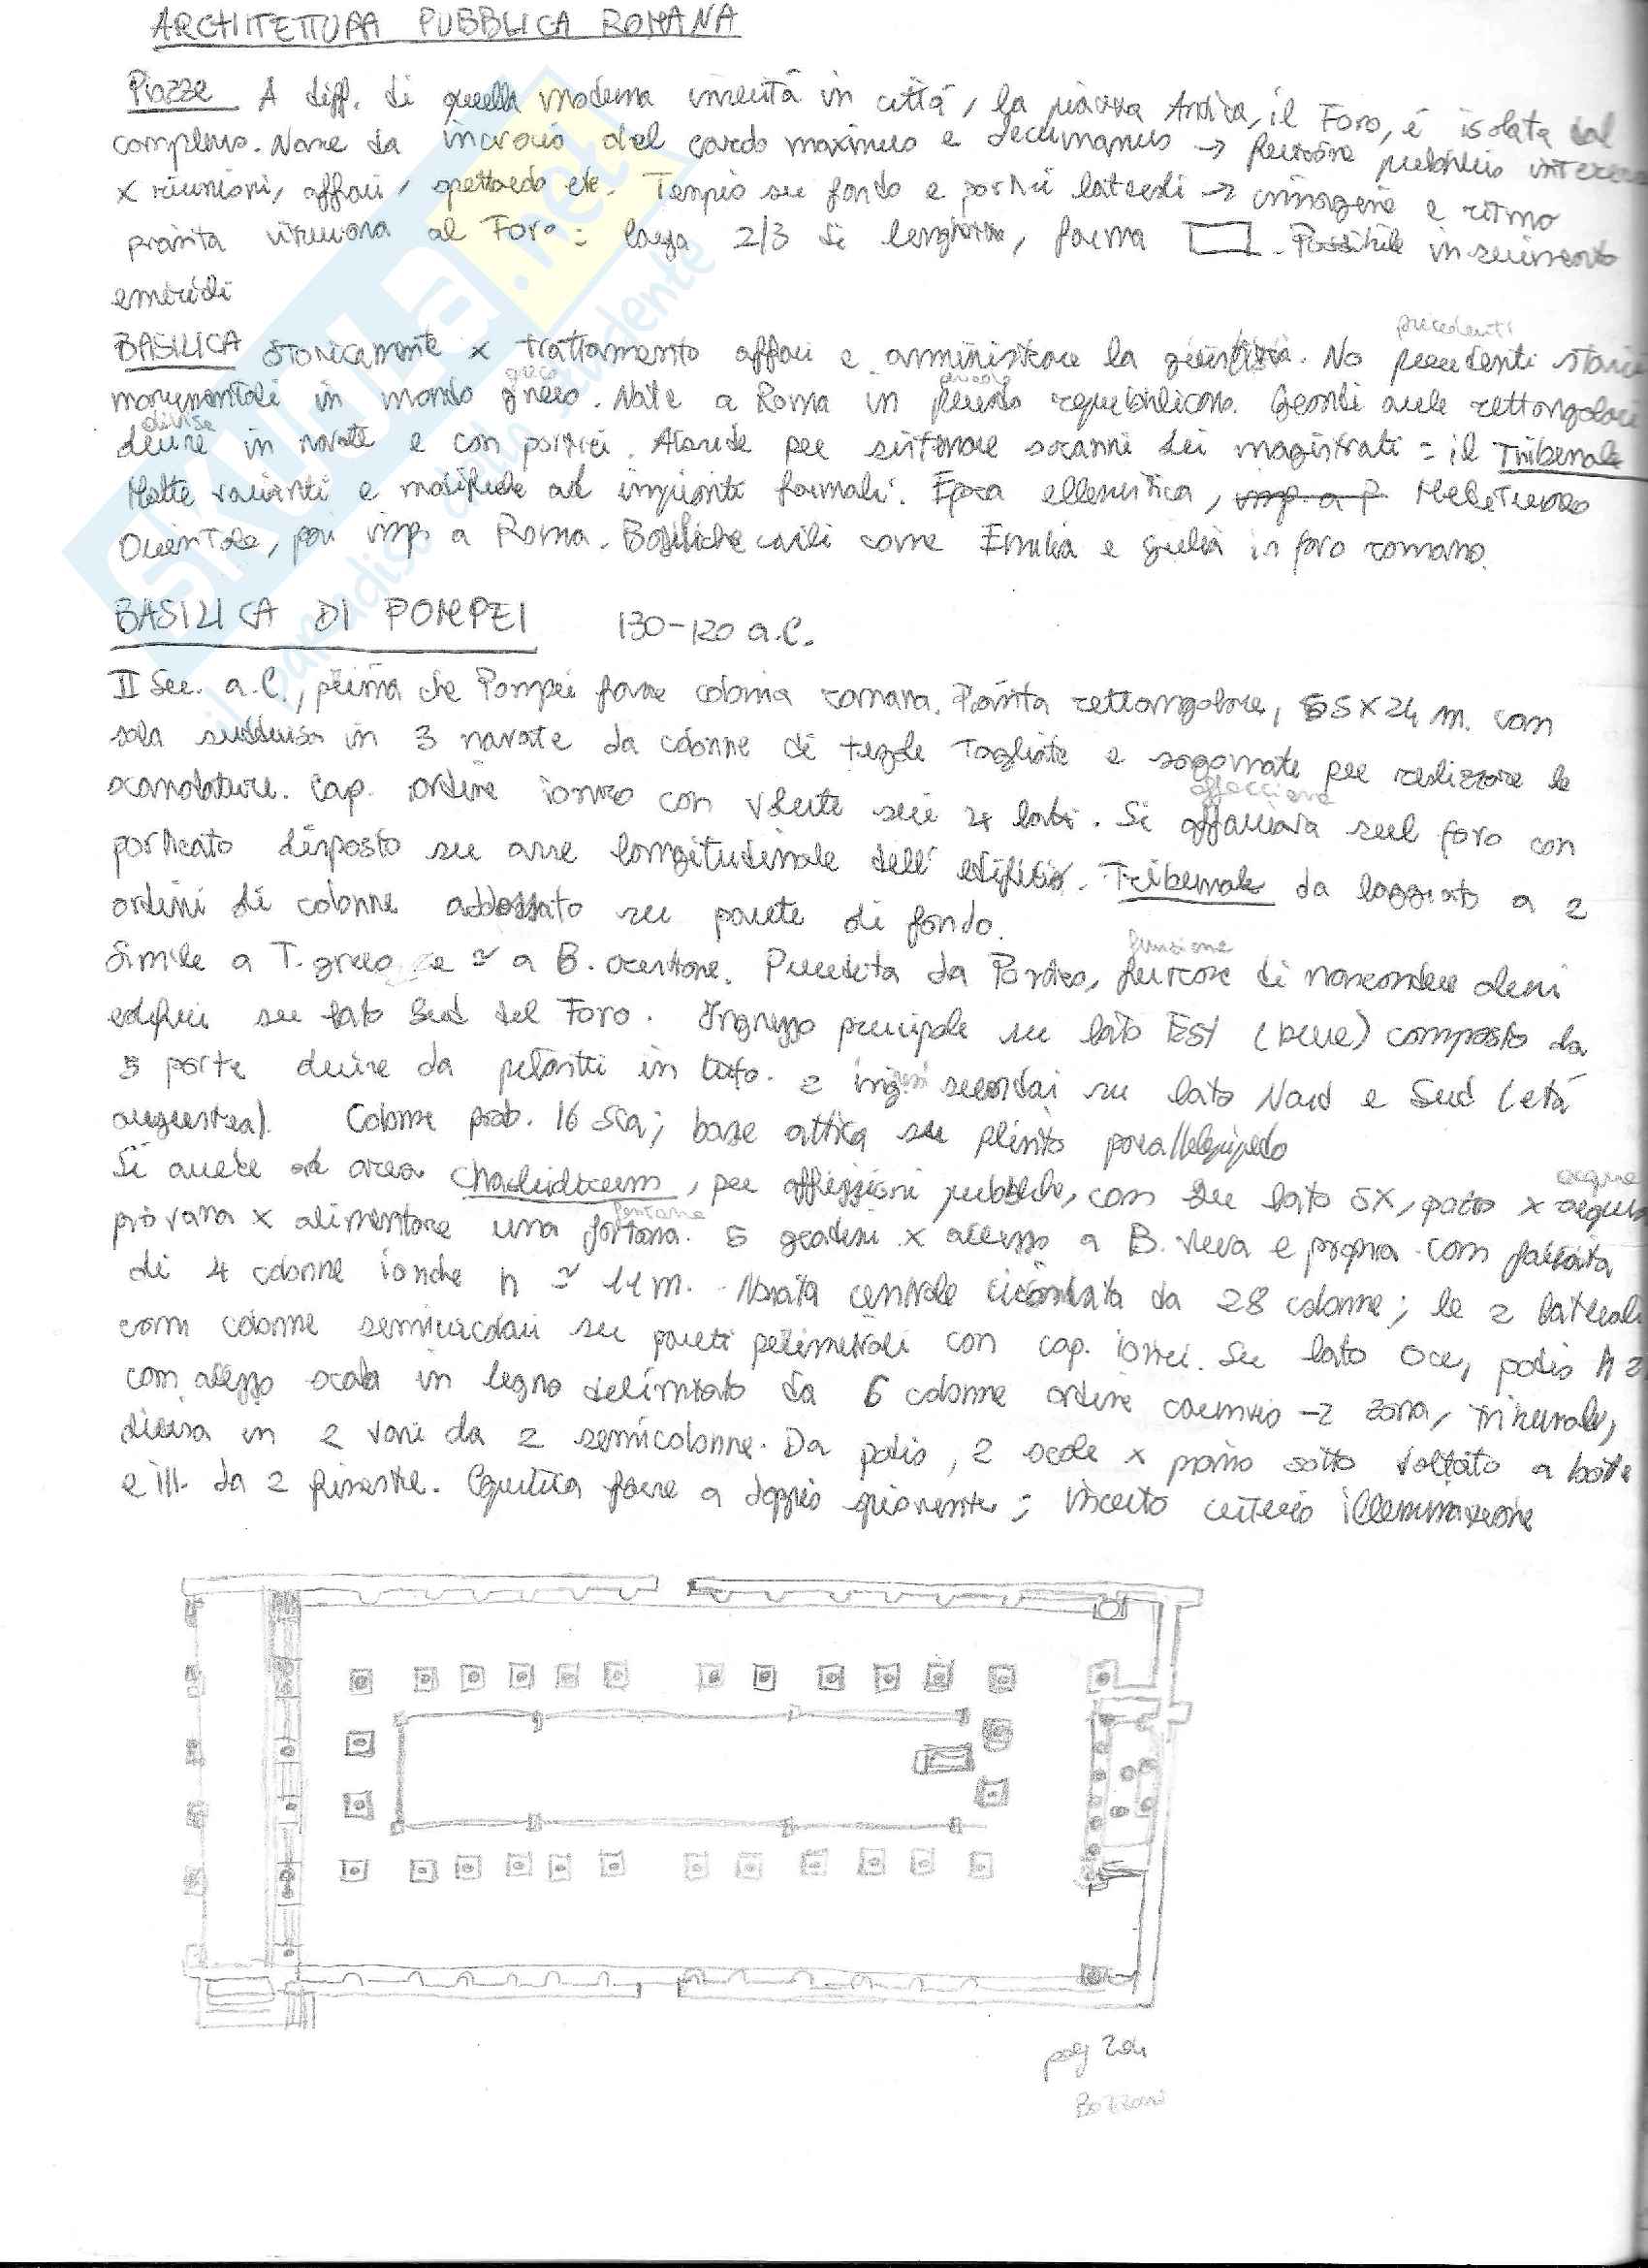 ARCHITETTURA PUBBLICA ROMANA
Piazze A diff. di quella moderna inserita in città, la piazza Antica, il Foro, è isolata dal
complesso. Nasce da incrocio del cardo maximus e decumanus → funzione pubblico interesse
x riunioni, affari, spettacolo etc. Tempio su fondo e portici laterali → immagine e ritmo
pianta vitruviana al Foro = larga 2/3 di lunghezza, forma . Possibile inserimento
emicicli
precedenti
BASILICA storicamente x trattamento affari e amministrare la giustizia. No precedenti storici
greco
monumentali in mondo greco. Nate a Roma in periodo repubblicano. Grandi aule rettangolari
divise
divise in navate e con portici. Abside per sistemare scanni dei magistrati = il Tribunale
Molte varianti e modifiche ad impianti formali. Epoca ellenistica, imp. a Mediterraneo
Orientale, poi imp. a Roma. Basiliche civili come Emilia e Giulia in foro romano.
BASILICA DI POMPEI 130-120 a.C.
II Sec. a.C., prima che Pompei fosse colonia romana. Pianta rettangolare, 55x24 m. con
sala suddivisa in 3 navate da colonne di tegole tagliate e sagomate per realizzare le
scanalature. Cap. ordine ionico con volute sui 4 lati. Si affacciava sul foro con
affacciava
porticato disposto su asse longitudinale dell' edificio. Tribunale da loggiato a 2
ordini di colonne addossato su parete di fondo.
Simile a T. greco e ≃ a B. cristiane. Preceduta da Portico, funzione di nascondere alcuni
funzione
edifici su lato Sud del Foro. Ingresso principale su lato EST (breve) composto da
5 porte divise da pilastri in tufo. 2 ingressi secondari su lato Nord e Sud (età
augustea). Colonne prob. 16 sca; base attica su plinto parallelepipedo
Si accede ad area chalcidicum, per affissioni pubbliche, con su lato SX, pozzo x acqua
acqua
piovana x alimentare una fontana. 5 gradini x accesso a B. vera e propria con facciata
fontana
di 4 colonne ioniche h ≃ 11 m. Navata centrale circondata da 28 colonne; le 2 laterali
con colonne semicircolari su pareti perimetrali con cap. ionici. Su lato Occ, podio h 2
con accesso scala in legno delimitato da 6 colonne ordine corinzio → zona, tribunale,
divisa in 2 vani da 2 semicolonne. Da podio, 2 scale x piano sotto voltato a botte
e ill. da 2 finestre. Copertura forse a doppio spiovente; incerto criterio illuminazione
pag 204
Bozzoni
SKUOLA.net
il paradiso dello studente